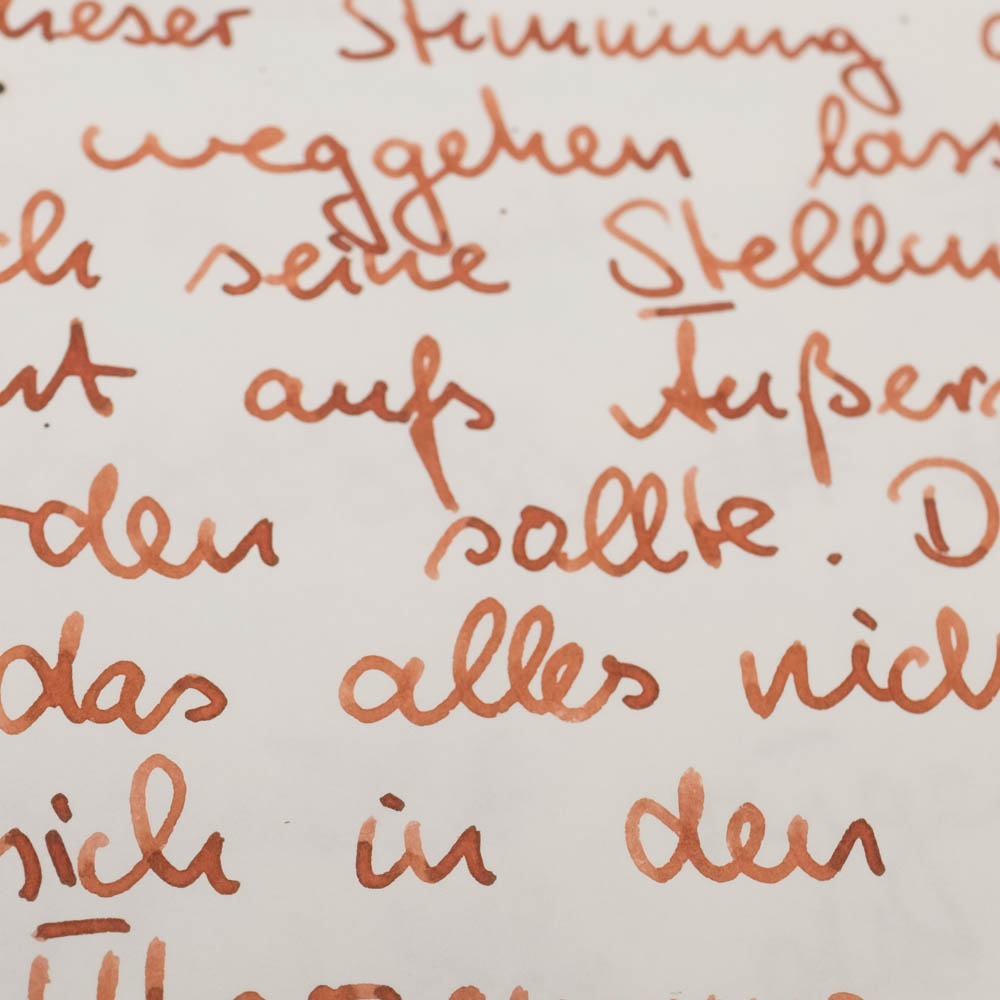 dieser Stimmung
weggehen lass
ich seine Stellun
aufs Äußers
den sollte. D
das alles nich
sich in den